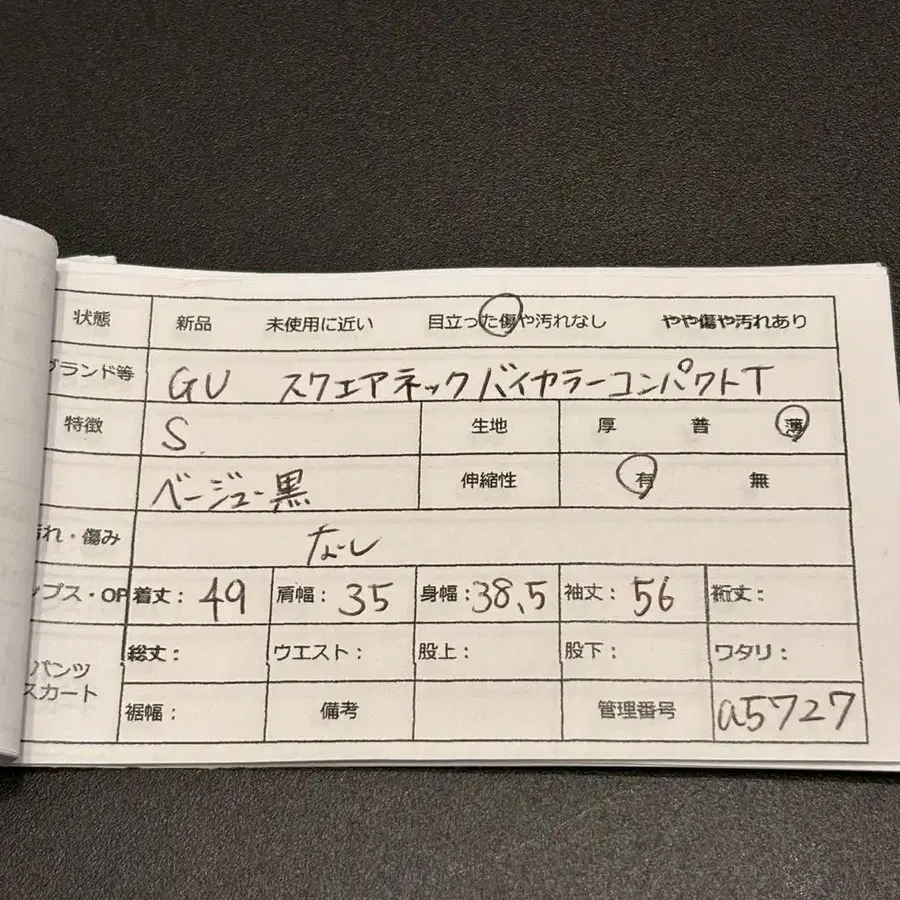 状態 新品 未使用に近い 目立った傷や汚れなし やや傷や汚れあり
ブランド等 GU スクエアネックバイカラーコンパクトT
特徴 S 生地 厚 普 薄
ベージュー黒 伸縮性 有 無
汚れ・傷み なし
ップス・OP 着丈: 49 肩幅: 35 身幅: 38.5 袖丈: 56 裄丈:
パンツ 総丈: ウエスト: 股上: 股下: ワタリ:
スカート 裾幅: 備考 管理番号 a5727